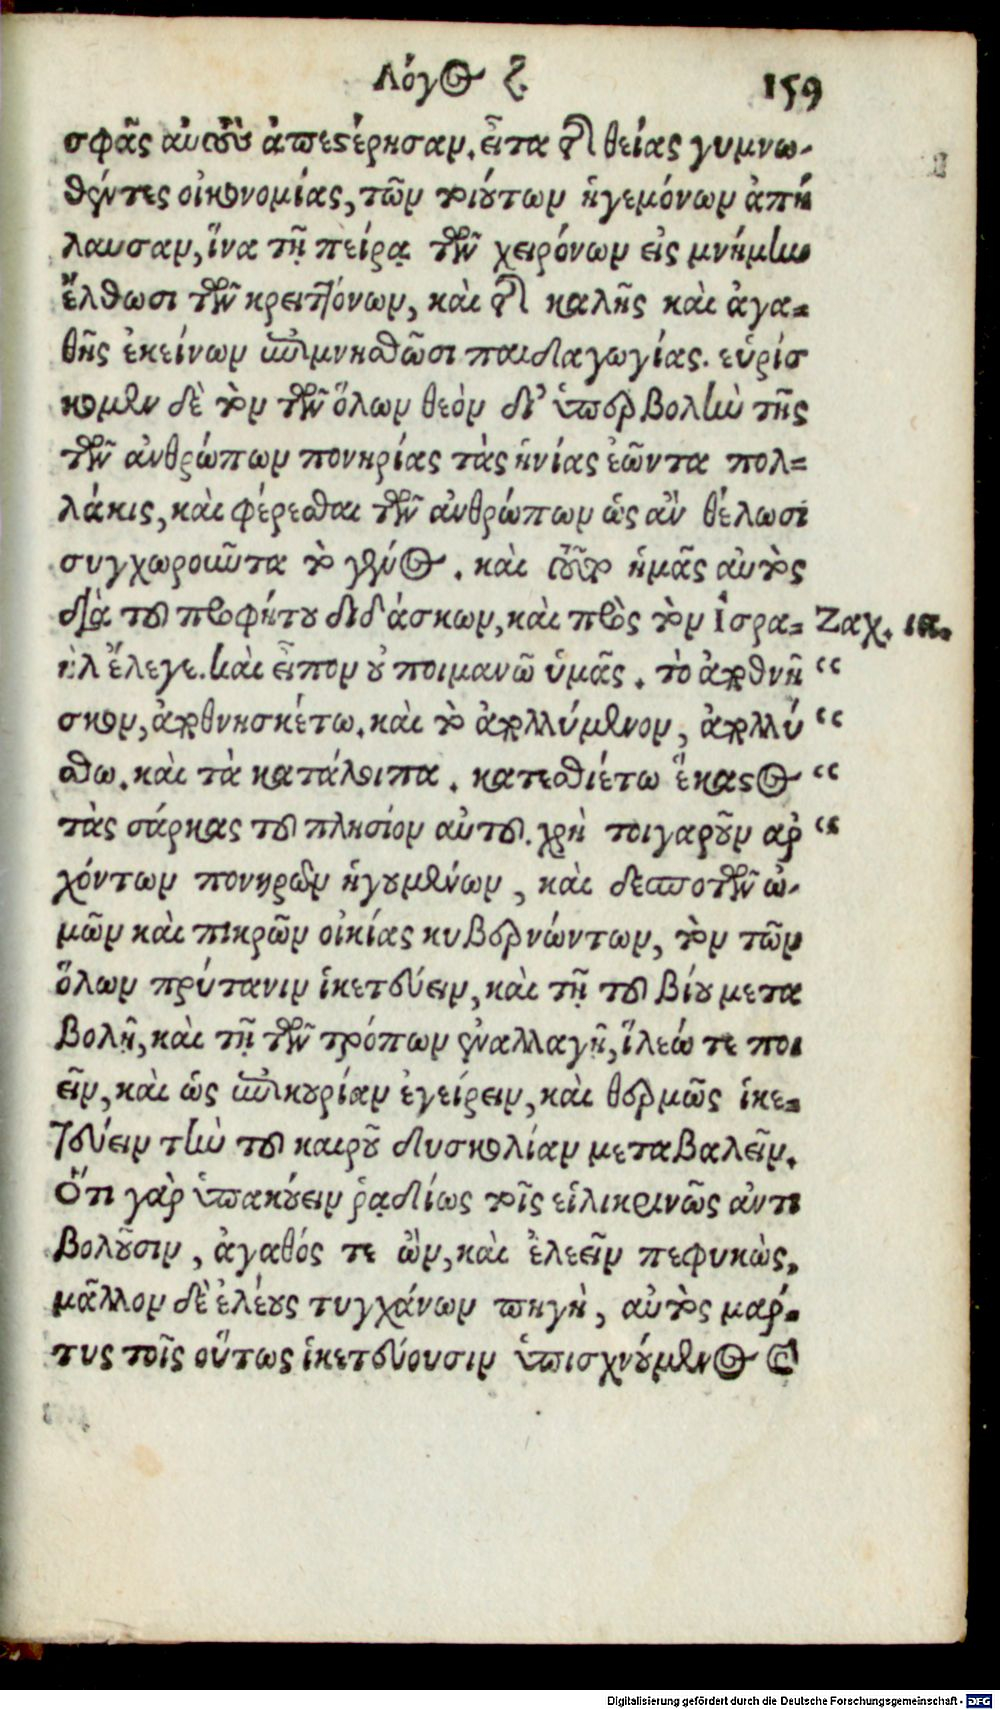 Λόγος ζ. 159
σφᾶς αὐτοὺς ἀπεστέρησαν. εἶτα τῆς θείας γυμνω-
θέντες οἰκονομίας, τῶν τοιούτων ἡγεμόνων ἀπή
λαυσαν, ἵνα τῇ πείρᾳ τῶν χειρόνων εἰς μνήμην
ἔλθωσι τῶν κρειττόνων, καὶ τῆς καλῆς καὶ ἀγα-
θῆς ἐκείνων ἐπιμνησθῶσι παιδαγωγίας. εὑρίσ
κομεν δὲ τὸν τῶν ὅλων θεὸν δι' ὑπερβολὴν τῆς
τῶν ἀνθρώπων πονηρίας τὰς ἡνίας ἐῶντα πολ-
λάκις, καὶ φέρεσθαι τῶν ἀνθρώπων ὡς ἂν θέλωσι
συγχωροῦντα τὸ γένος. καὶ τοῦτο ἡμᾶς αὐτὸς
διὰ τοῦ προφήτου διδάσκων, καὶ πρὸς τὸν Ἰσρα- Ζαχ. ια.
ὴλ ἔλεγε. καὶ εἶπον οὐ ποιμανῶ ὑμᾶς. τὸ ἀποθνῆ “
σκον, ἀποθνησκέτω. καὶ τὸ ἀπολλύμενον, ἀπολλύ “
σθω. καὶ τὰ κατάλοιπα. κατεσθιέτω ἕκαστος “
τὰς σάρκας τοῦ πλησίον αὐτοῦ. χρὴ τοιγαροῦν ἀρ “
χόντων πονηρῶν ἡγουμένων, καὶ δεσποτῶν ὠ-
μῶν καὶ πικρῶν οἰκίας κυβερνώντων, τὸν τῶν
ὅλων πρύτανιν ἱκετεύειν, καὶ τῇ τοῦ βίου μετα
βολῇ, καὶ τῇ τῶν τρόπων ἐναλλαγῇ, ἵλεώ τε ποι
εῖν, καὶ ὡς ἐπικουρίαν ἐγείρειν, καὶ θερμῶς ἱκε-
τεύειν τὴν τοῦ καιροῦ δυσκολίαν μεταβαλεῖν.
Ὅτι γὰρ ὑπακούειν ῥᾳδίως τοῖς εἱλικρινῶς ἀντι
βολοῦσιν, ἀγαθός τε ὢν, καὶ ἐλεεῖν πεφυκὼς,
μᾶλλον δὲ ἐλέους τυγχάνων πηγὴ, αὐτὸς μάρ-
τυς τοῖς οὕτως ἱκετεύουσιν ὑπισχνούμενος
Digitalisierung gefördert durch die Deutsche Forschungsgemeinschaft - DFG